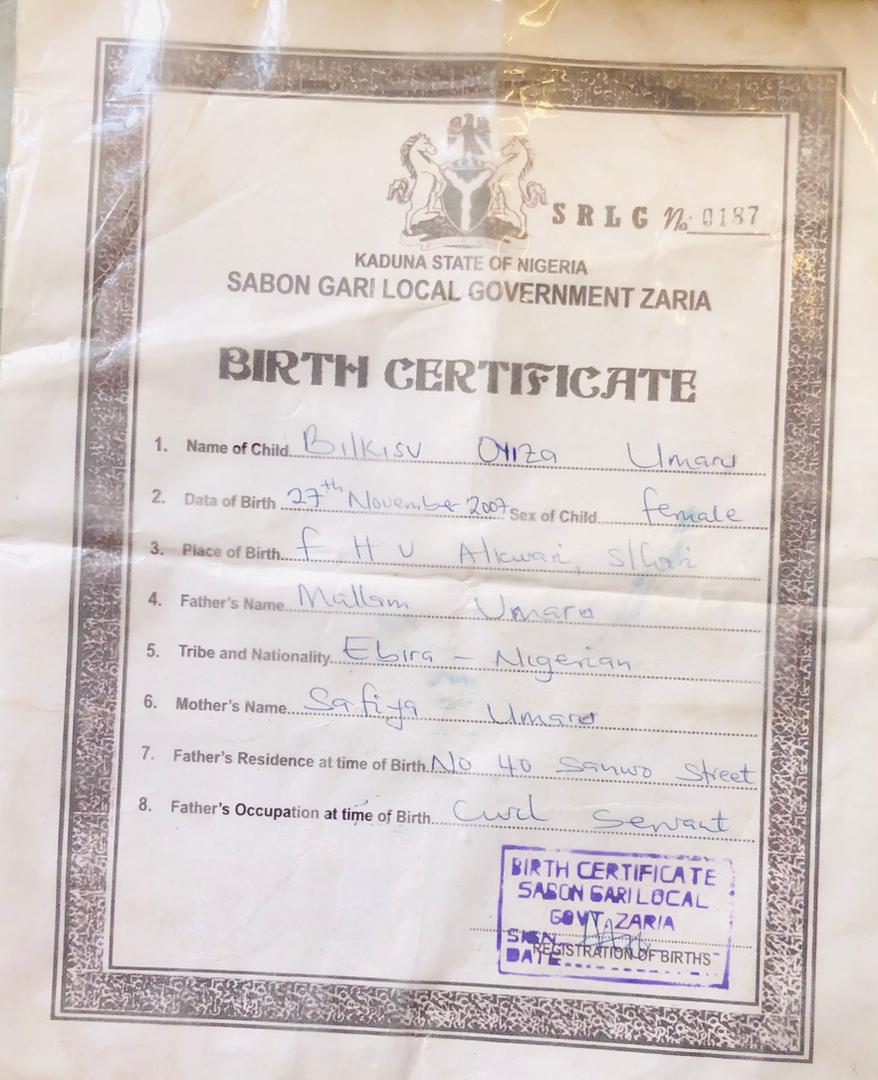 SRLG No. 0187
KADUNA STATE OF NIGERIA
SABON GARI LOCAL GOVERNMENT ZARIA
BIRTH CERTIFICATE
1. Name of Child Bilkisu OYIZA Umaru
2. Data of Birth 27th November 2007 Sex of Child female
3. Place of Birth f H U Alkwari, S/Gari
4. Father's Name Mallam Umaru
5. Tribe and Nationality Ebira - Nigerian
6. Mother's Name Safiya Umaru
7. Father's Residence at time of Birth No 40 Sanwo Street
8. Father's Occupation at time of Birth Civil Servant
BIRTH CERTIFICATE
SABON GARI LOCAL
GOVT, ZARIA
SIGN
REGISTRATION OF BIRTHS
DATE